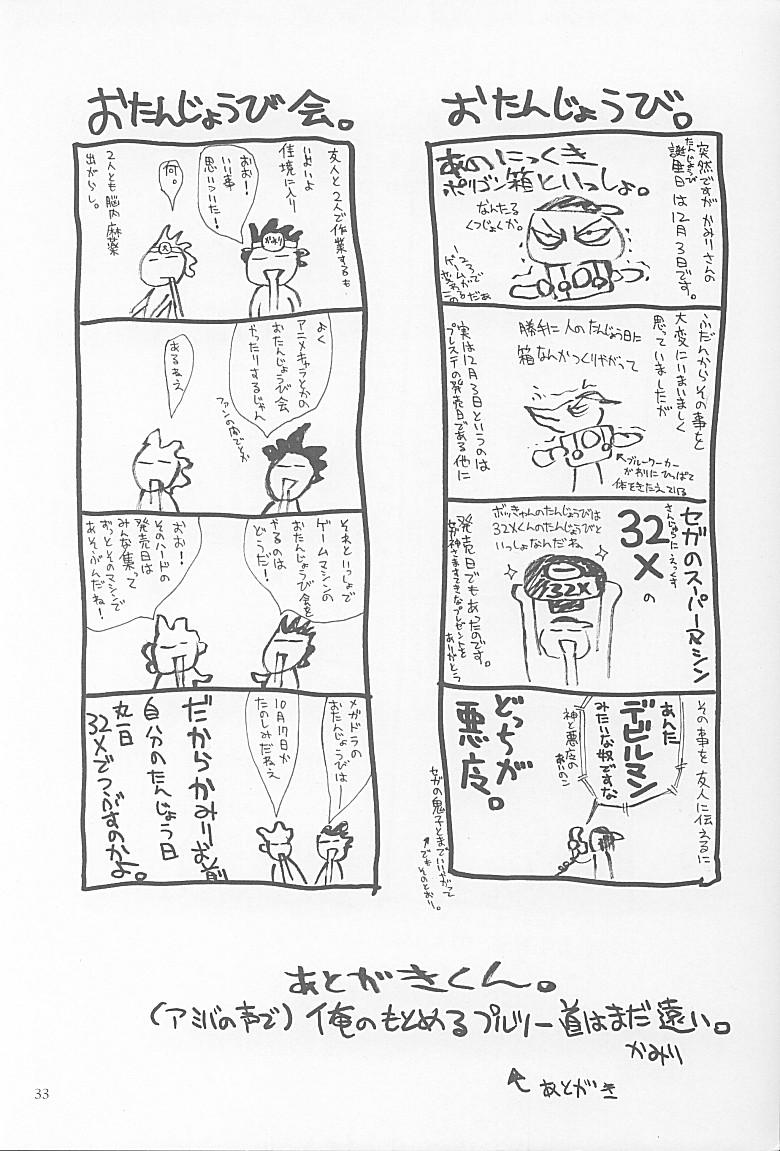 おたんじょうび。
突然ですが かみりさんの
誕生日は12月3日です。
たんじょうび
あのにっくき
ポリゴン箱といっしょ。
なんたる
くつじょくか。
ふだんからその事を
大変にいまいましく
思っていましたが
勝手に人のたんじょう日に
箱なんかつくりやがって
←ブルーワーカー
がわりにひっぱて
体をきたえている
実は12月3日というのは
プレステの発売日である他に
セガのスーパーマシン
さんじゅうにえっくす
32X
の
ボッきゃんのたんじょうびは
32Xくんのたんじょうびと
いっしょなんだね
32X
発売日でもあったのです。
女神さますてきなプレゼントを
ありがとう
その事を友人に伝えるに
あんた
デビルマン
みたいな奴ですな
神と悪魔の
あいのこ
どっちが
悪魔。
セガの鬼子とまでいいがって
↑でもそのとおり。
おたんじょうび会。
友人と2人で作業するも
いよいよ
佳境に入り
おお!
いい事
思いついた!
かみり
何。
2人とも脳内麻薬
出がらし。
よく
アニメキャラとかの
おたんじょうび会
やったりするじゃん
ファンの内でとか
あるねえ
それといっしょで
ゲームマシンの
おたんじょうび会を
やるのは
どうだ!
おお!
そのハードの
発売日は
みんな集って
ずっとそのマシンで
あそぶんだね!
メガドラの
おたんじょうびは
10月29日が
たのしみだねえ
だからかみりお前
自分のたんじょう日
丸一日
32Xでつぶすのかよ。
あとがきくん。
(アミバの声で)俺のもとめるプルツー道はまだ遠い。
かみり
↖あとがき
33